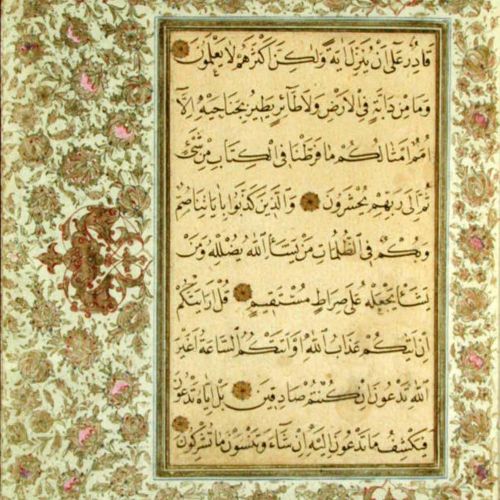 قادر على ان ينزل اية ولكن اكثرهم لا يعلمون
وما من دابة في الارض ولا طائر يطير بجناحيه الا
امم امثالكم ما فرطنا في الكتاب من شئ
ثم الى ربهم يحشرون والذين كذبوا باياتنا صم
وبكم في الظلمات من يشأ الله يضلله ومن
يشأ يجعله على صراط مستقيم قل ارايتكم
ان اتيكم عذاب الله او اتتكم الساعة اغير
الله تدعون ان كنتم صادقين بل اياه تدعون
فيكشف ما تدعون اليه ان شاء وتنسون ما تشركون